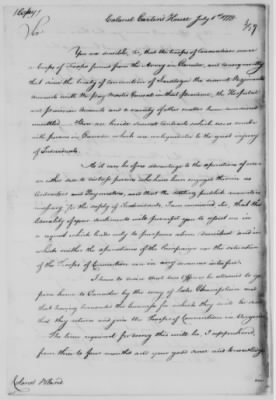 (Copy)
Colonel Carleton's House July 6th 1779
159
Sir
You are sensible, Sir, that the Troops of Convention were
a Corps of Troops formed from the Army in Canada, and consequently
that since the treaty of Convention of Saratoga the several Regiments
accounts with the pay master General in that Province, the Hospital
and provision Accounts and a variety of other matters have remained
unsettled. There are besides several contracts which were made
with persons in Canada which are unliquidated to the great injury
of Individuals.
As it can be of no advantage to the operations of war
on either side to distress persons who have been engaged therein as
Contractors and Paymasters, and that the settling publick accounts is
for the safety of Individuals, I am convinced Sir, that the
liberality of your sentiments will prompt you to assist me in
a request which tends only to purposes above and in
which neither the operations of the Campaign nor the situation
of the Troops of Convention can in any manner be
I have to desire that two Officers be allowed to go
from hence to Canada by the way of Lake Champlain and
that having transacted the business for which they will be sent
that they return and join the Troops of Convention in Virginia
The time required for doing this will be, I apprehend,
from three to four months and your good sense and knowledge
Colonel Bland